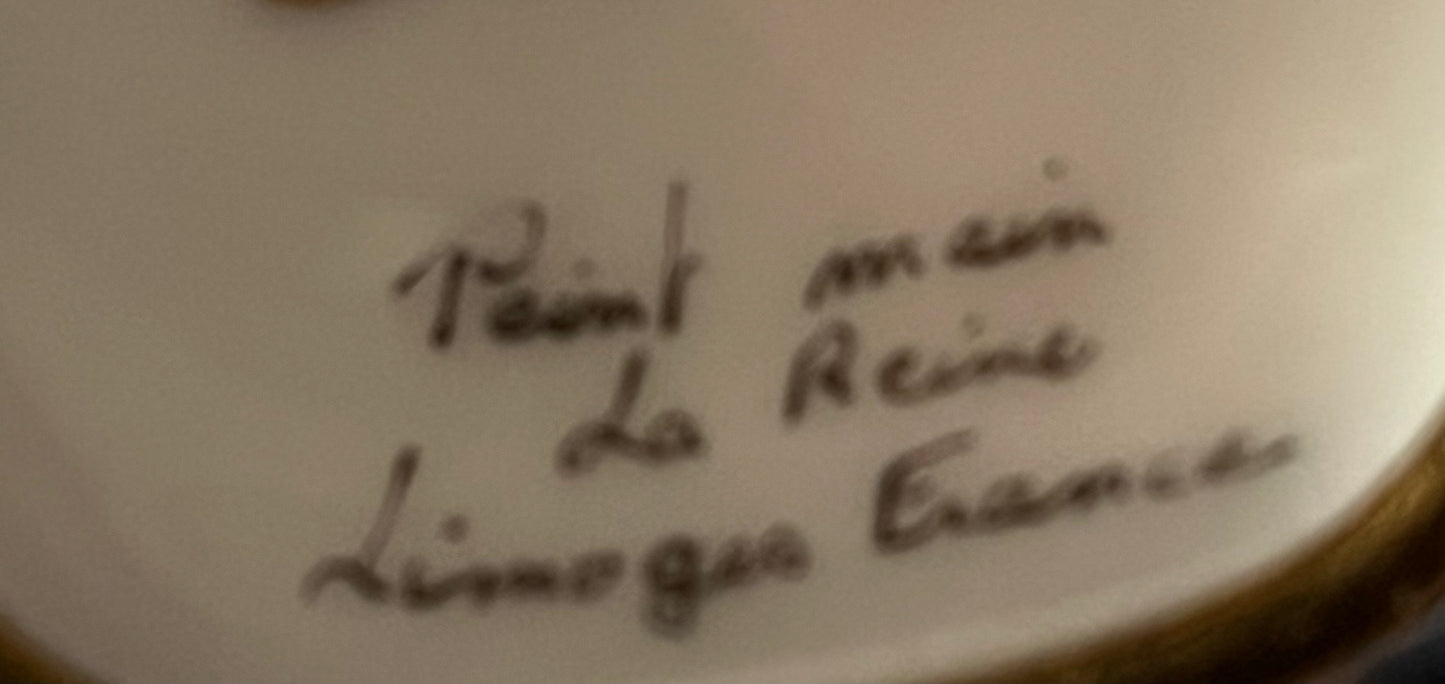 Peint main
La Reine
Limoges France